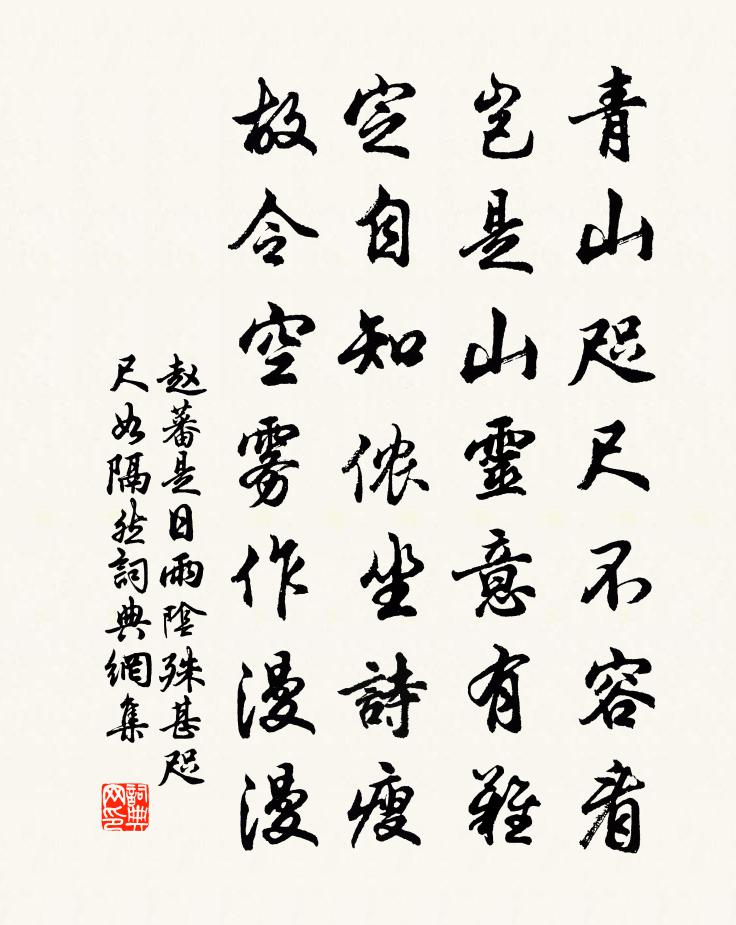 青山咫尺不容看
岂是山靈意有難
定自知侬坐詩瘦
故令空雾作漫漫
赵蕃是日雨陰殊甚咫
尺如隔然詞典網集
詞典
网印